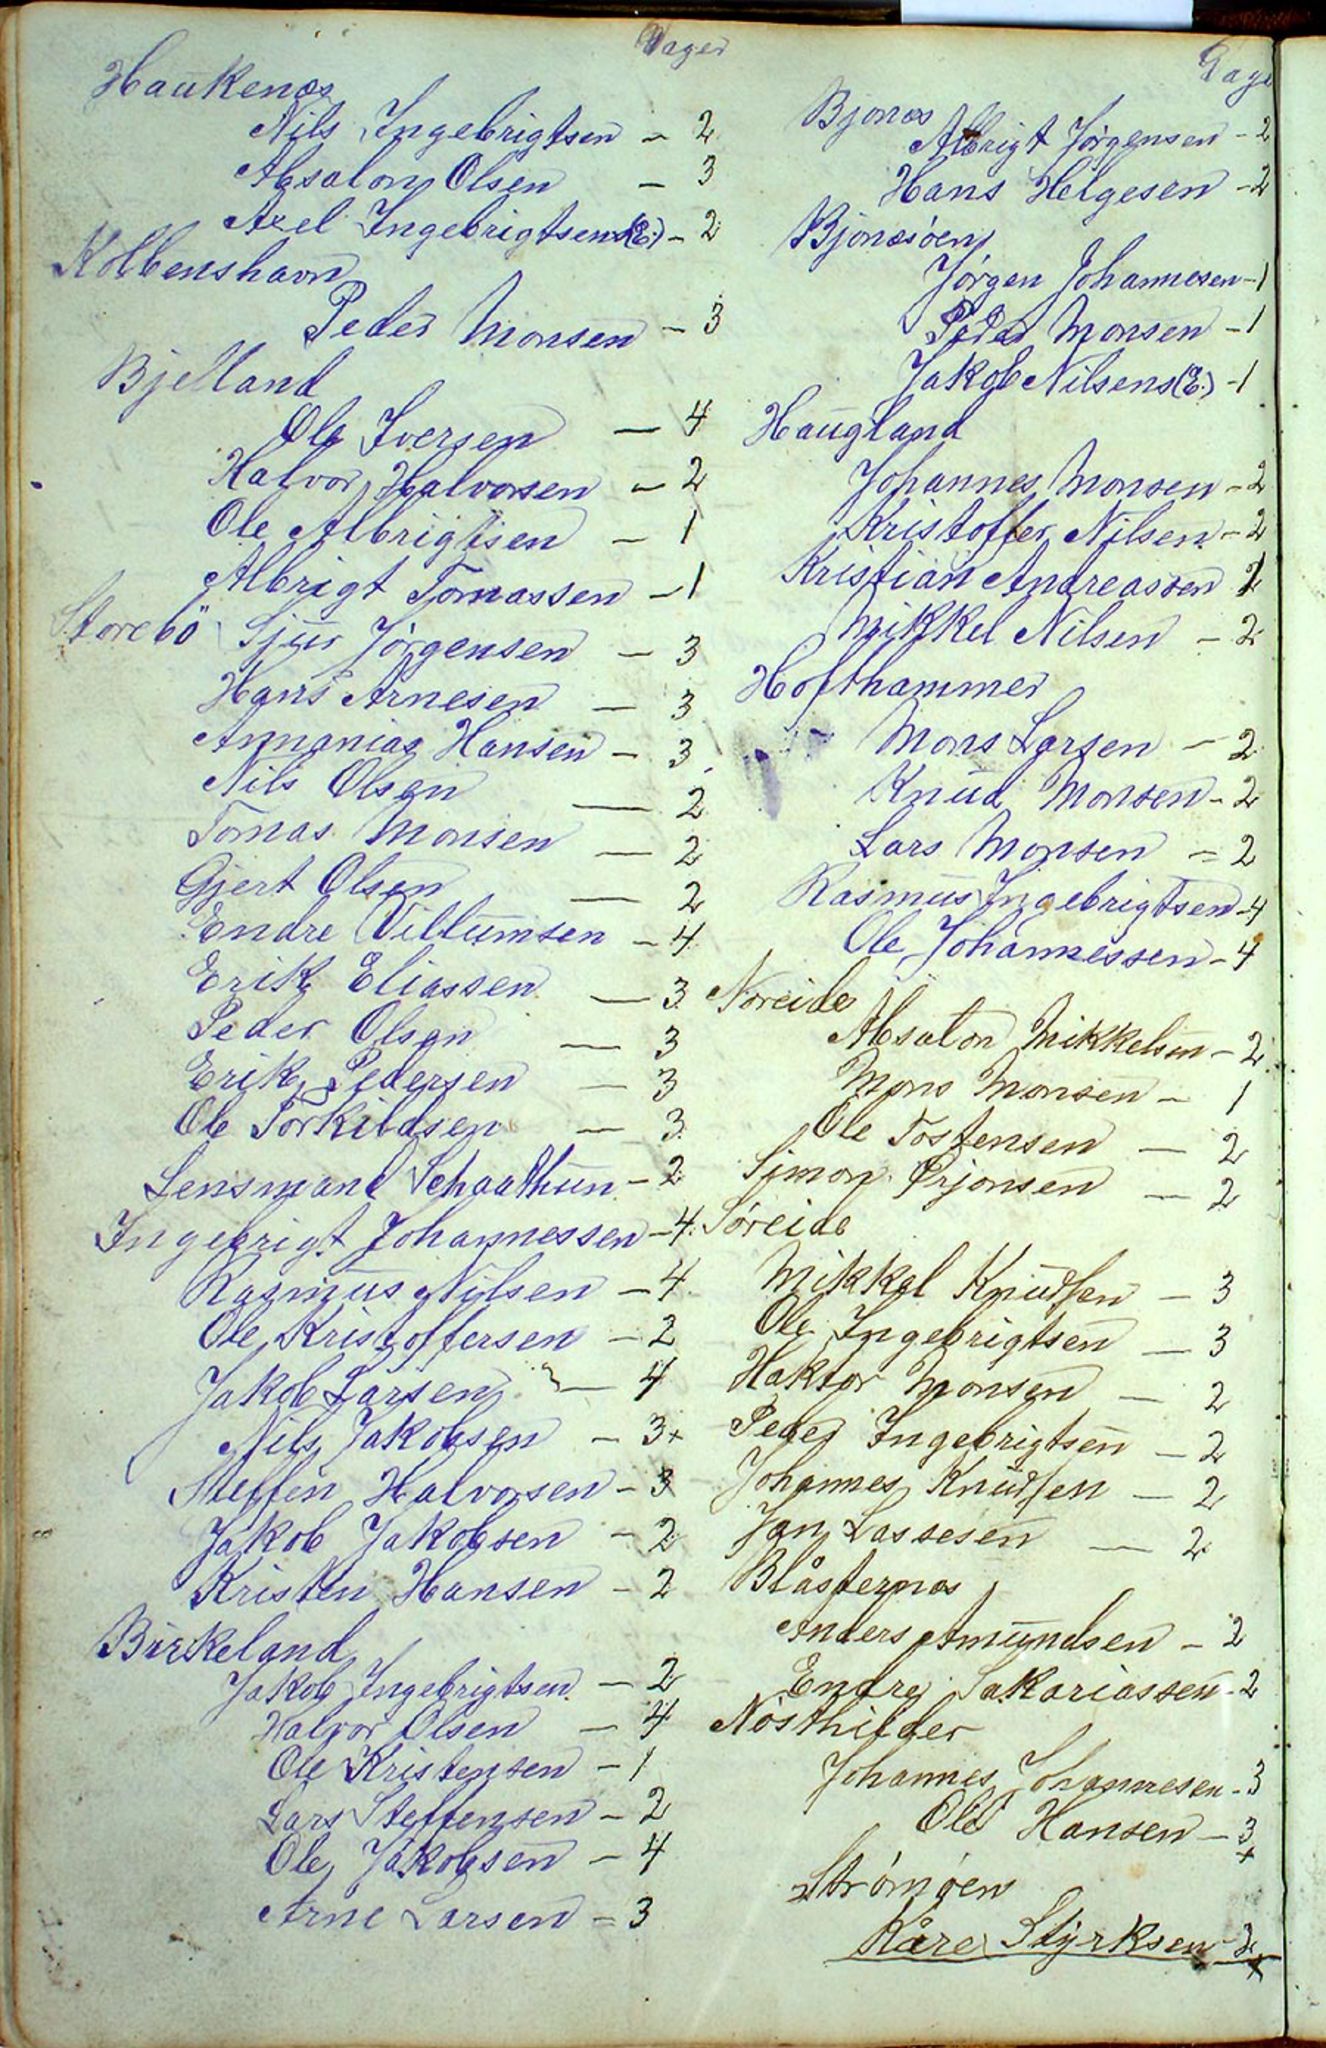 Dager
Haukenæs
Nils Ingebrigtsen - 2
Absalon Olsen - 3
Axel Ingebrigtsens(E.) - 2
Kolbenshavn
Peder Monsen - 3
Bjelland
Ole Iversen - 4
Halvor Halvorsen - 2
Ole Albrigtsen - 1
Albrigt Tomassen - 1
Storebö Sjur Jørgensen - 3
Hans Arnesen - 3
Annanias Hansen - 3
Nils Olsen - 2
Tomas Monsen - 2
Gjert Olsen - 2
Endre Villumsen - 4
Erik Eliassen - 3
Peder Olsen - 3
Erik Pedersen - 3
Ole Torkildsen - 3
Lensmand Schaathun - 2
Ingebrigt Johannessen - 4
Rasmus Nilsen - 4
Ole Kristoffersen - 2
Jakob Larsen - 4
Nils Jakobsen - 3+
Steffen Halvorsen - 3
Jakob Jakobsen - 2
Kristen Hansen - 2
Birkeland
Jakob Ingebrigtsen - 2
Halvor Olsen - 4
Ole Kristensen - 1
Lars Steffensen - 2
Ole Jakobsen - 4
Arne Larsen = 3
Dage
Bjonæs
Albrigt Jørgensen - 2
Hans Helgesen - 2
Bjonæsøen
Jørgen Johannesen - 1
Peder Monsen - 1
Jakob Nilsens(E.) - 1
Haugland
Johannes Monsen - 2
Kristoffer Nilsen - 2
Kristian Andreassen
Mikkel Nilsen - 2
Hofthammer
Mons Larsen - 2
Knud Monsen - 2
Lars Monsen = 2
Rasmus Ingebrigtsen - 4
Ole Johannessen - 4
Noreide
Absalon Mikkelsen - 2
Mons Monsen - 1
Ole Tostensen - 2
Simon Ørjonsen - 2
Søreide
Mikkel Knudsen - 3
Ole Ingebrigtsen - 3
Haktor Monsen - 2
Peder Ingebrigtsen - 2
Johannes Knudsen - 2
Jan Lassesen - 2
Blåsternæs
Anders Amundsen - 2
Endre Sakariassen - 2
Nøsthilder
Johannes Johannesen - 3
Ole Hansen - 3
+
Strømøen
Kåre Styrksen - 3
+